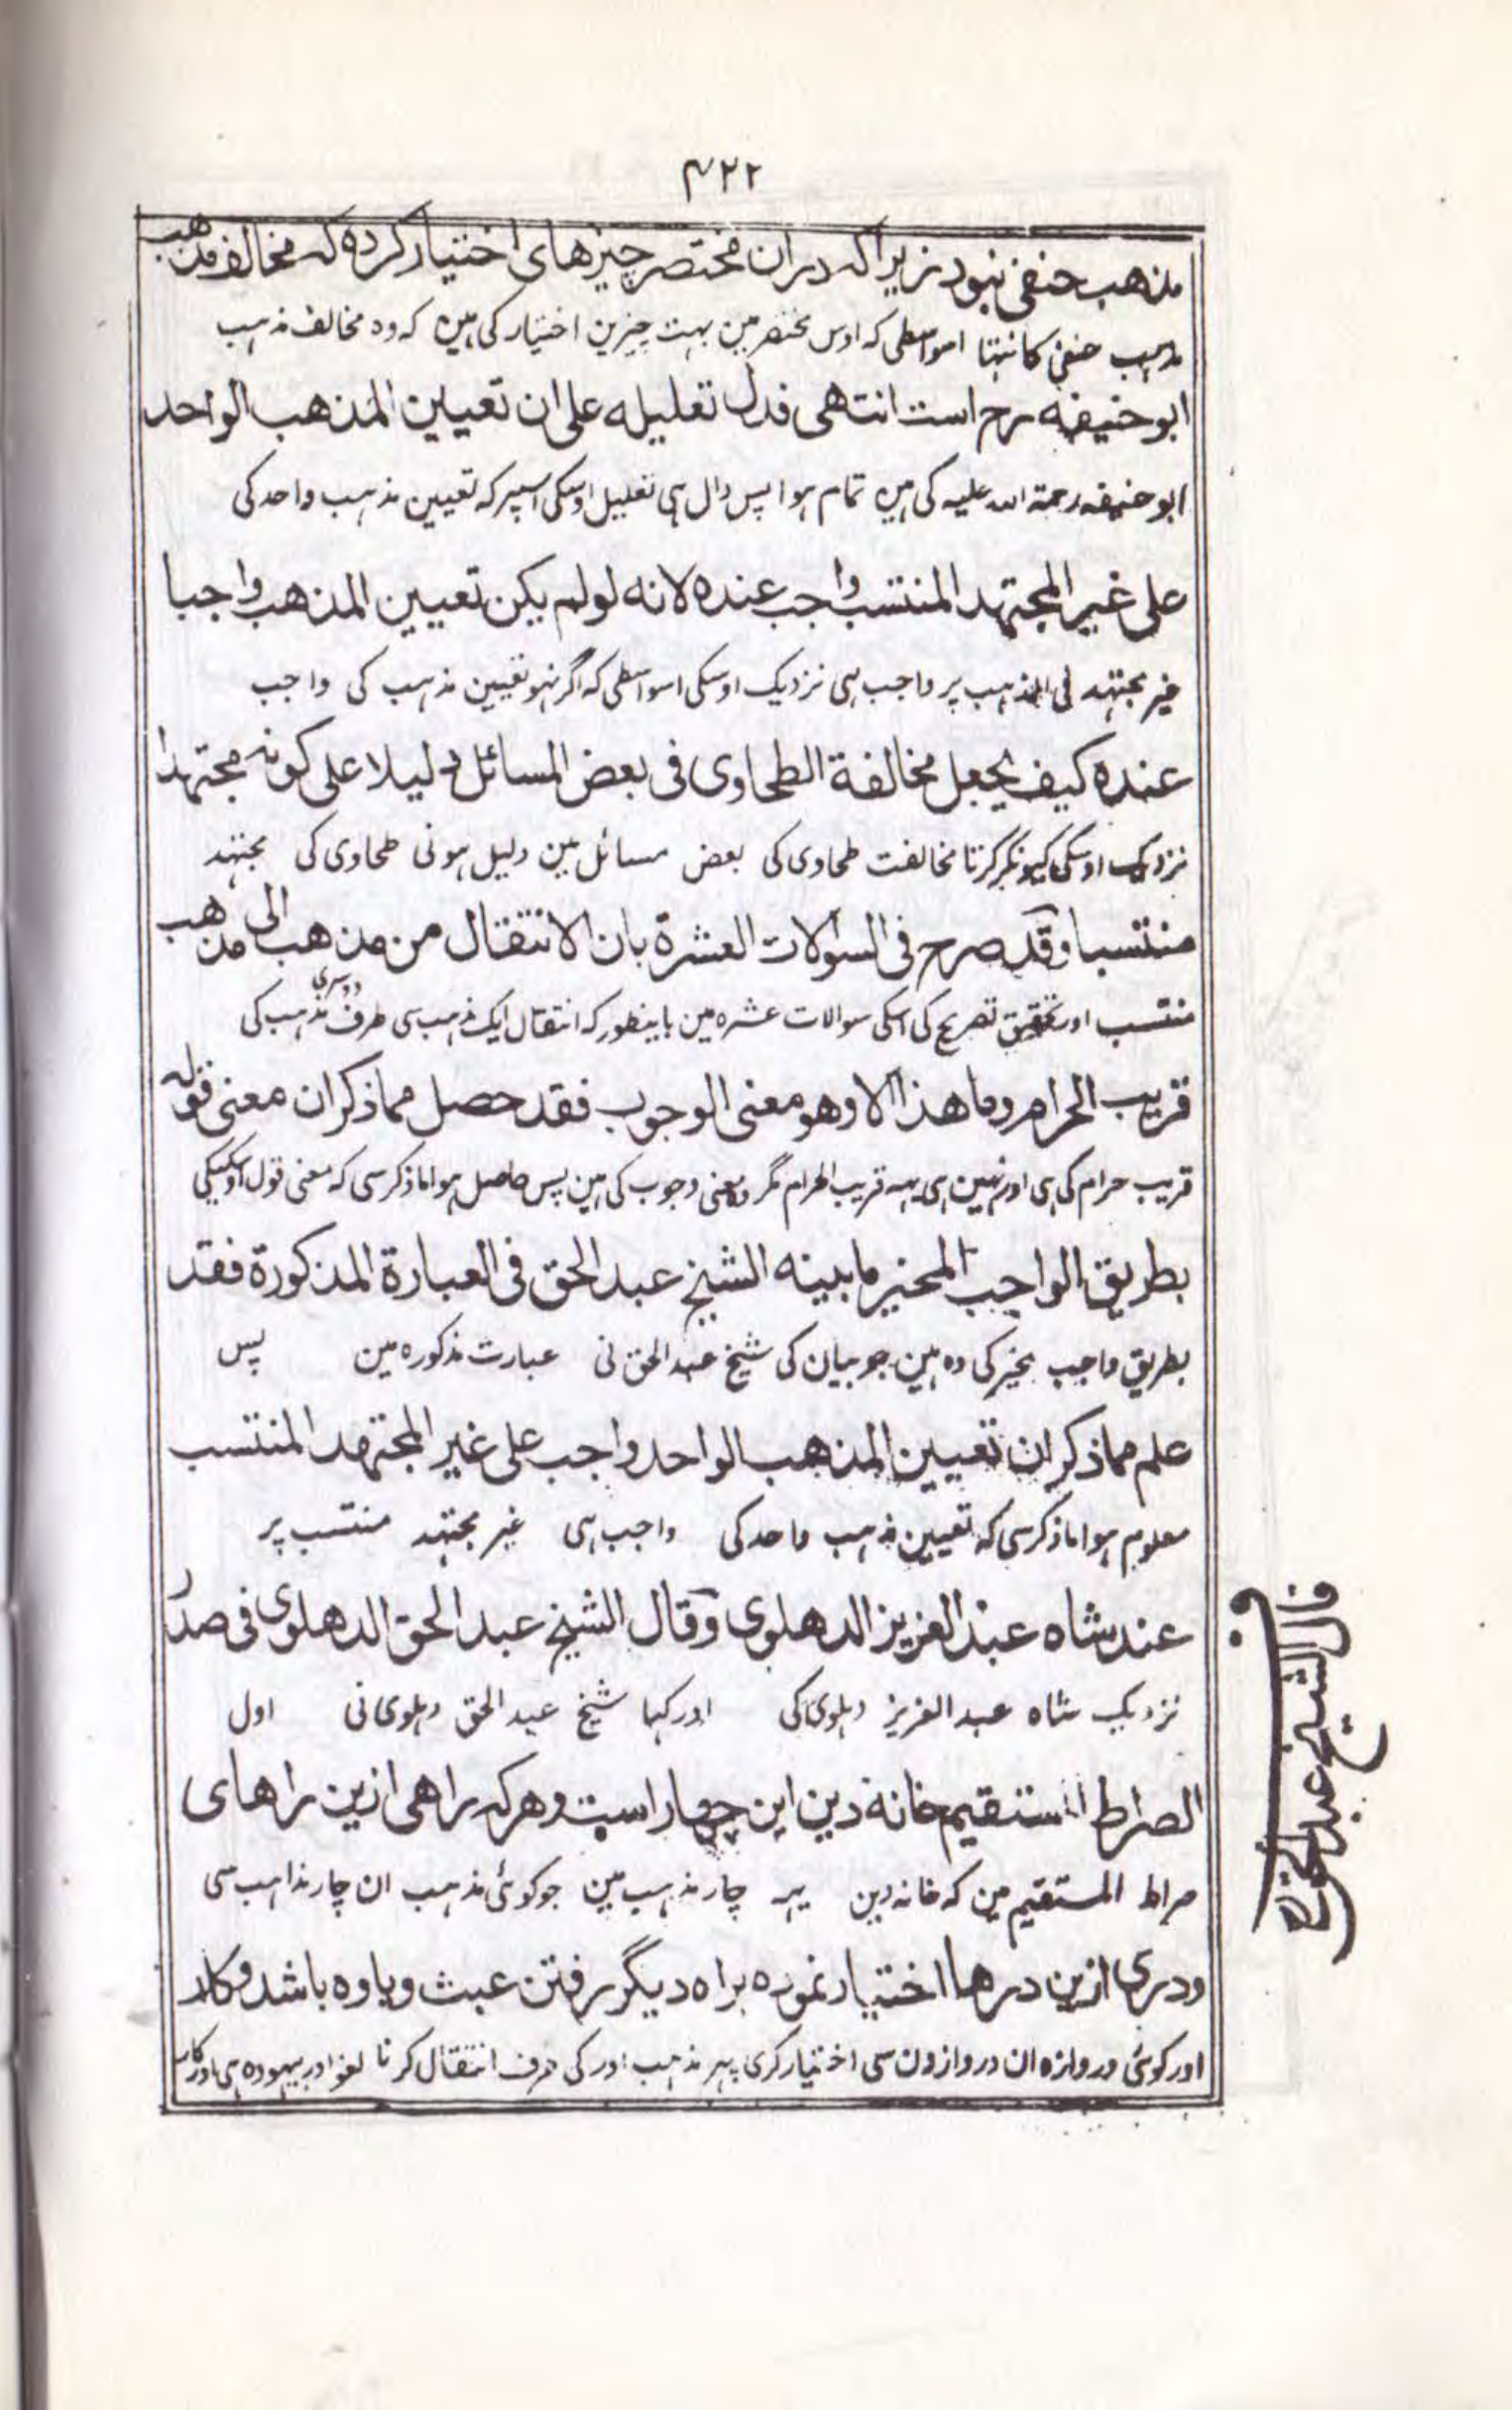 ۴۲۲
مذهب حنفی نبود زیراکه دران مختصر چیزهای اختیار کرده که مخالف مذهب
مذہب حنفی کا نتہا اسواسطی کہ اوس مختصر مین بہت چیزین اختیار کی ہین کہ وہ مخالف مذہب
ابوحنیفه رح است انتهی فدل تعلیله علی ان تعیین المذهب الواحد
ابو حنیفہ رحمۃ اللہ علیہ کی ہین تمام ہوا پس دال ہی تعلیل اوسکی اسپر کہ تعیین مذہب واحد کی
علی غیر المجتهد المنتسب واجب عنده لانه لو لم یکن تعیین المذهب واجبا
غیر مجتہد فی المذہب پر واجب ہی نزدیک اوسکی اسواسطی کہ اگر نہو تعیین مذہب کی واجب
عنده کیف یجعل مخالفة الطحاوی فی بعض المسائل دلیلا علی کونه مجتهدا
نزدیک اوسکی کیونکر کرتا مخالفت طحاوی کی بعض مسائل مین دلیل ہونی طحاوی کی مجتہد
منتسبا وقد صرح فی السوالات العشرة بان الانتقال من مذهب الی مذهب
منتسب اور تحقیق تصریح کی اسکی سوالات عشرہ مین باینطور کہ انتقال ایک مذہب سی طرف دوسری مذہب کی
قریب الحرام وما هذا الا وهو معنی الوجوب فقد حصل مما ذکر ان معنی قوله
قریب حرام کی ہی اور نہین ہی یہہ قریب الحرام مگر معنی وجوب کی ہین پس حاصل ہوا ماذکر سی کہ معنی قول اوسکیکی
بطریق الواجب المخیر ما بینه الشیخ عبد الحق فی العبارة المذکورة فقد
بطریق واجب مخیر کی وہ ہین جو بیان کی شیخ عبد الحق نی عبارت مذکورہ مین پس
علم مما ذکر ان تعیین المذهب الواحد واجب علی غیر المجتهد المنتسب
معلوم ہوا ماذکر سی کہ تعیین مذہب واحد کی واجب ہی غیر مجتہد منتسب پر
عند شاه عبد العزیز الدهلوی وقال الشیخ عبد الحق الدهلوی فی صدر
نزدیک شاہ عبد العزیز دہلوی کی اور کہا شیخ عبد الحق دہلوی نی اول
الصراط المستقیم خانه دین این چهار است و هرکه راهی ازین راهای
صراط المستقیم مین کہ خانہ دین یہہ چار مذہب ہین جو کوئی مذہب ان چار مذاہب سی
ودری ازین درها اختیار نموده براه دیگر رفتن عبث و یاوه باشد و کار
اور کوئی دروازہ ان دروازون سی اختیار کری پہر مذہب اور کی طرف انتقال کرنا لغو اور بیہودہ ہی اور کار
قال الشیخ عبد الحق